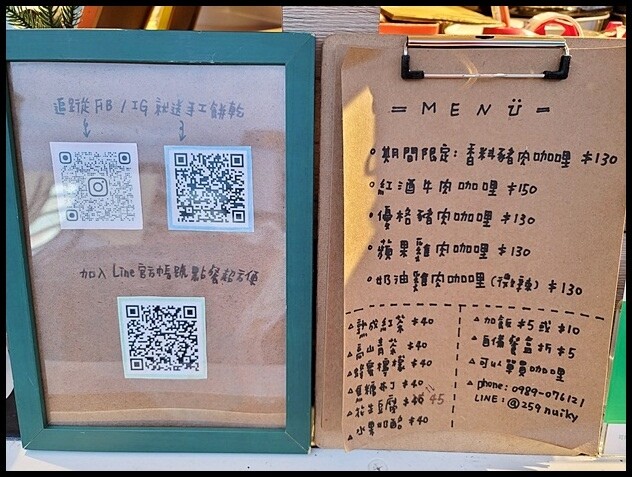 追蹤從FB / IG 就送手工餅乾
加入Line官方帳號點餐超方便
= MENÜ =
期間限定: 香料豬肉咖哩 $130
紅酒牛肉咖哩 $150
優格豬肉咖哩 $130
蘋果雞肉咖哩 $130
奶油雞肉咖哩 (微辣) $130
△熟成紅茶 $40
△高山青茶 $40
△蜂蜜檸檬 $40
△焦糖布丁 $40
△花生豆腐 45
△水果奶酪 $40
△加飯 $5 或 $10
△自備餐盒折 $5
△可以單買咖哩
△phone: 0989-076121
LINE: @259nuiky